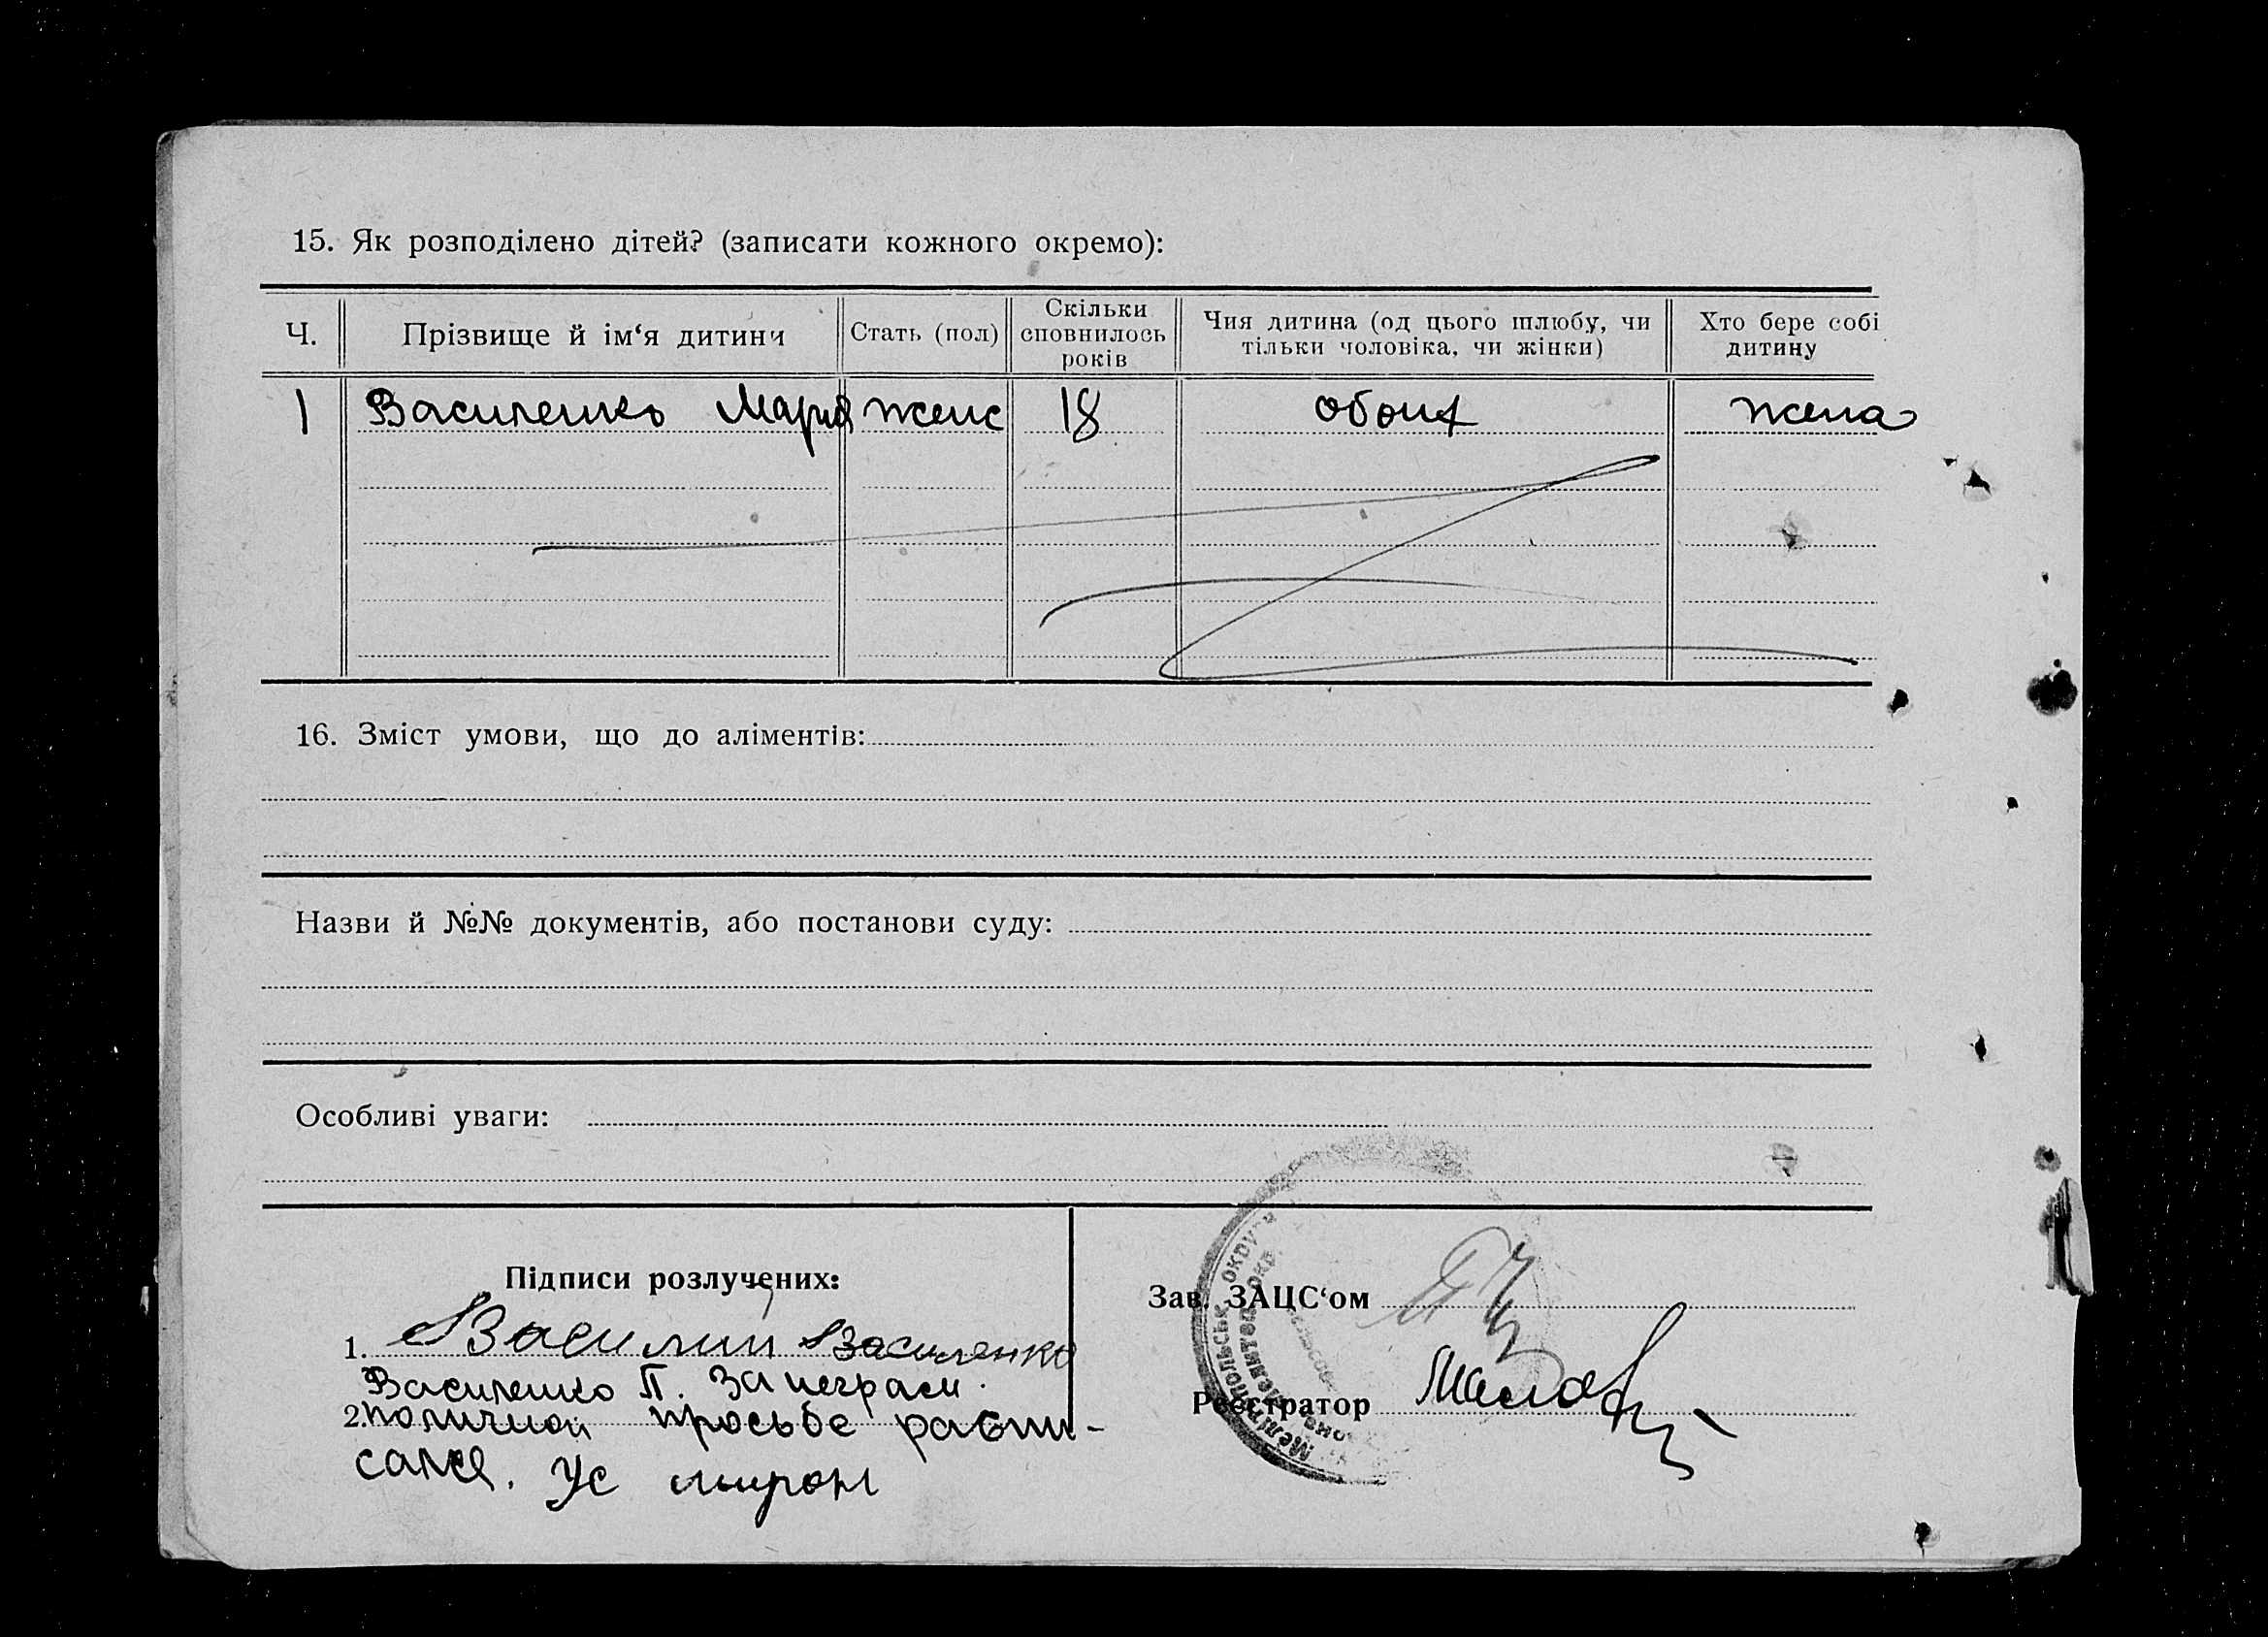 15. Як розподілено дітей? (записати кожного окремо):
Ч. Прізвище й ім‘я дитини Стать (пол) Скільки сповнилось років Чия дитина (од цього шлюбу, чи тільки чоловіка, чи жінки) Хто бере собі дитину
1 Василенко Мария женс 18 обоих жена
16. Зміст умови, що до аліментів:
Назви й №№ документів, або постанови суду:
Особливі уваги:
Підписи розлучених:
1. Василий Василенко
Василенко П. За неграм.
2. по личной просьбе распи-
сался. Ус Мирон
Зав. ЗАЦС‘ом
Реєстратор